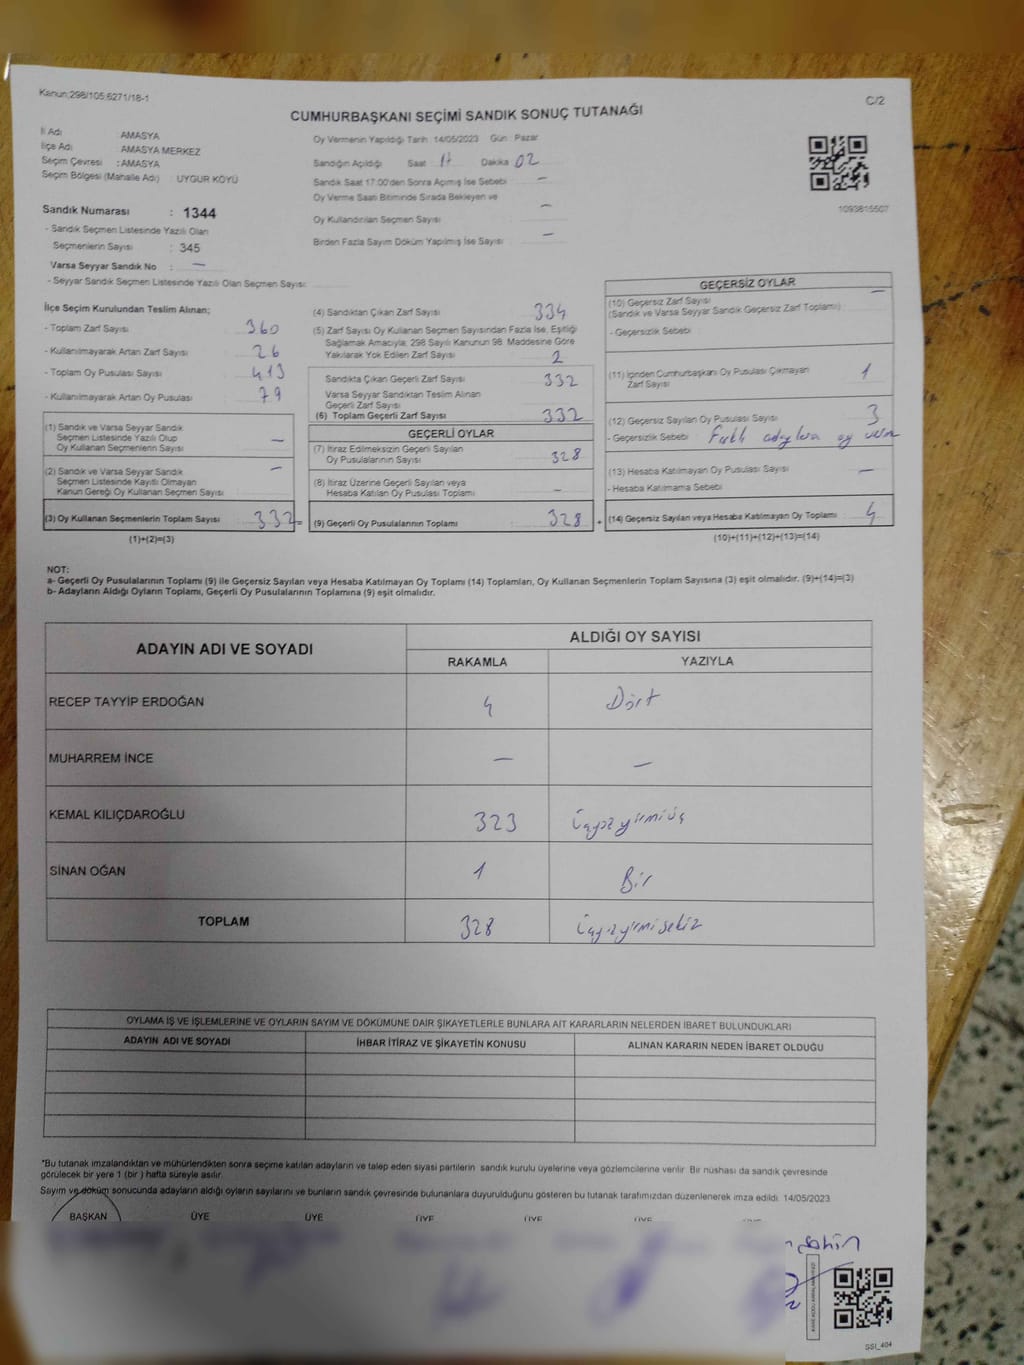 Kanun;298/105;6271/18-1
C/2
CUMHURBAŞKANI SEÇİMİ SANDIK SONUÇ TUTANAĞI
İl Adı AMASYA
İlçe Adı AMASYA MERKEZ
Seçim Çevresi : AMASYA
Seçim Bölgesi (Mahalle Adı) : UYGUR KÖYÜ
Oy Vermenin Yapıldığı Tarih : 14/05/2023 Gün : Pazar
Sandığın Açıldığı Saat Dakika 02
Sandık Saat 17:00'den Sonra Açımış İse Sebebi —
Oy Verme Saati Bitiminde Sırada Bekleyen ve
Oy Kullandırılan Seçmen Sayısı —
Birden Fazla Sayım Döküm Yapılmış İse Sayısı —
1093815507
Sandık Numarası : 1344
- Sandık Seçmen Listesinde Yazılı Olan
Seçmenlerin Sayısı : 345
Varsa Seyyar Sandık No : —
- Seyyar Sandık Seçmen Listesinde Yazılı Olan Seçmen Sayısı:
İlçe Seçim Kurulundan Teslim Alınan;
- Toplam Zarf Sayısı 360
- Kullanılmayarak Artan Zarf Sayısı 26
- Toplam Oy Pusulası Sayısı 413
- Kullanılmayarak Artan Oy Pusulası 79
(1) Sandık ve Varsa Seyyar Sandık
Seçmen Listesinde Yazılı Olup
Oy Kullanan Seçmenlerin Sayısı —
(2) Sandık ve Varsa Seyyar Sandık
Seçmen Listesinde Kayıtlı Olmayan
Kanun Gereği Oy Kullanan Seçmen Sayısı —
(3) Oy Kullanan Seçmenlerin Toplam Sayısı 332 =
(1)+(2)=(3)
(4) Sandıktan Çıkan Zarf Sayısı 334
(5) Zarf Sayısı Oy Kullanan Seçmen Sayısından Fazla İse, Eşitliği
Sağlamak Amacıyla; 298 Sayılı Kanunun 98. Maddesine Göre
Yakılarak Yok Edilen Zarf Sayısı 2
Sandıkta Çıkan Geçerli Zarf Sayısı 332
Varsa Seyyar Sandıktan Teslim Alınan
Geçerli Zarf Sayısı
(6) Toplam Geçerli Zarf Sayısı 332
GEÇERLİ OYLAR
(7) İtiraz Edilmeksizin Geçerli Sayılan
Oy Pusulalarının Sayısı 328
(8) İtiraz Üzerine Geçerli Sayılan veya
Hesaba Katılan Oy Pusulası Toplamı —
(9) Geçerli Oy Pusulalarının Toplamı 328 +
GEÇERSİZ OYLAR
(10) Geçersiz Zarf Sayısı —
(Sandık ve Varsa Seyyar Sandık Geçersiz Zarf Toplamı)
- Geçersizlik Sebebi
(11) İçinden Cumhurbaşkanı Oy Pusulası Çıkmayan
Zarf Sayısı 1
(12) Geçersiz Sayılan Oy Pusulası Sayısı 3
- Geçersizlik Sebebi Farklı adaylara oy verme
(13) Hesaba Katılmayan Oy Pusulası Sayısı —
- Hesaba Katılmama Sebebi
(14) Geçersiz Sayılan veya Hesaba Katılmayan Oy Toplamı 4
(10)+(11)+(12)+(13)=(14)
NOT:
a- Geçerli Oy Pusulalarının Toplamı (9) ile Geçersiz Sayılan veya Hesaba Katılmayan Oy Toplamı (14) Toplamları, Oy Kullanan Seçmenlerin Toplam Sayısına (3) eşit olmalıdır. (9)+(14)=(3)
b- Adayların Aldığı Oyların Toplamı, Geçerli Oy Pusulalarının Toplamına (9) eşit olmalıdır.
ADAYIN ADI VE SOYADI ALDIĞI OY SAYISI
RAKAMLA YAZIYLA
RECEP TAYYİP ERDOĞAN 4 Dört
MUHARREM İNCE — —
KEMAL KILIÇDAROĞLU 323 üçyüzyirmiüç
SİNAN OĞAN 1 Bir
TOPLAM 328 üçyüzyirmisekiz
OYLAMA İŞ VE İŞLEMLERİNE VE OYLARIN SAYIM VE DÖKÜMÜNE DAİR ŞİKAYETLERLE BUNLARA AİT KARARLARIN NELERDEN İBARET BULUNDUKLARI
ADAYIN ADI VE SOYADI İHBAR İTİRAZ VE ŞİKAYETİN KONUSU ALINAN KARARIN NEDEN İBARET OLDUĞU
*Bu tutanak imzalandıktan ve mühürlendikten sonra seçime katılan adayların ve talep eden siyasi partilerin sandık kurulu üyelerine veya gözlemcilerine verilir. Bir nüshası da sandık çevresinde
görülecek bir yere 1 (bir ) hafta süreyle asılır.
Sayım ve döküm sonucunda adayların aldığı oyların sayılarını ve bunların sandık çevresinde bulunanlara duyurulduğunu gösteren bu tutanak tarafımızdan düzenlenerek imza edildi. 14/05/2023
BAŞKAN ÜYE ÜYE ÜYE ÜYE ÜYE
SSİ_404